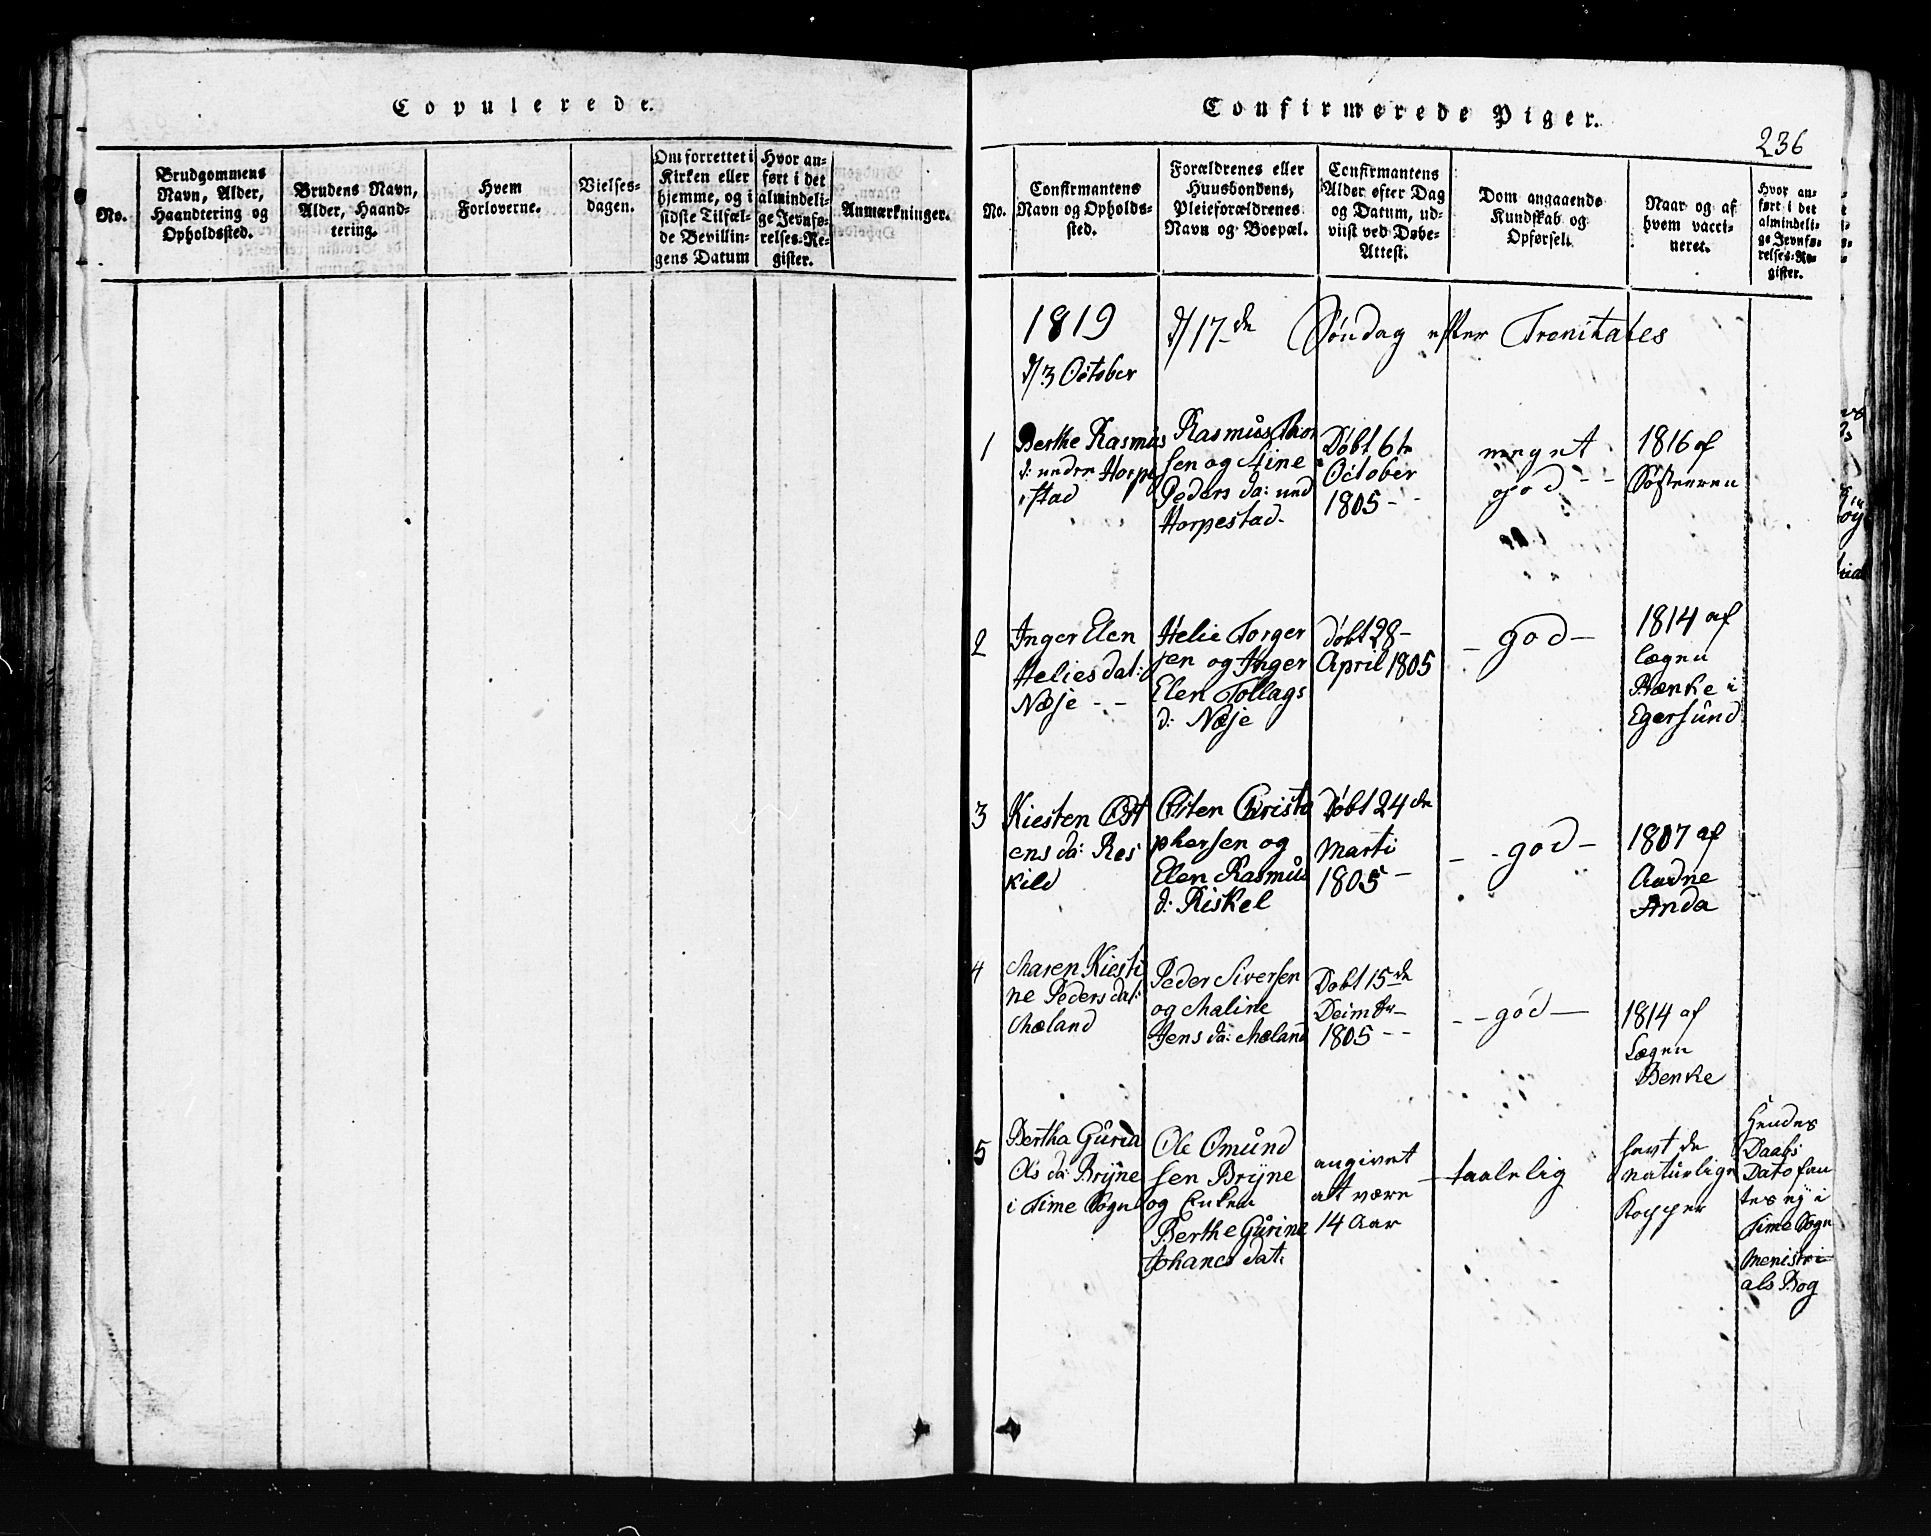 Copulerede.
No.
Brudgommens
Navn, Alder,
Haandtering og
Opholdssted.
Brudens Navn,
Alder, Haand-
tering.
Hvem
Forloverne.
Vielses-
dagen.
Om forrettet i
Kirken eller
hjemme, og i
sidste Tilfæl-
de Bevillin-
gens Datum
Hvor an-
ført i det
almindeli-
ge Jevnfø-
relses-Re-
gister.
Anmærkninger.
Confirmerede Piger.
236
No.
Confirmantens
Navn og Opholds-
sted.
Forældrenes eller
Huusbondens,
Pleieforældrenes
Navn og Boepæl.
Confirmantens
Alder efter Dag
og Datum, ud-
viist ved Døbe-
Attest.
Dom angaaende
Kundskab og
Opførsel.
Naar og af
hvem vacci-
neret.
Hvor an-
ført i det
almindeli-
ge Jevnfø-
relses-Re-
gister.
1819
d/17de Søndag efter Trenitates
d/3 October
1
Berthe Rasmus
d: under Horpe
stad
Rasmus Thor
sen og Stine
Peders da: und
Horpestad-
Døbt 6te
October
1805 -
meget
god - -
1816 af
Søsteeren
2
Inger Elen
Helies dat:
Næje - -
Helie Torger
sen og Inger
Elen Tollags
d: Næje
døbt 28-
April 1805
- god -
1814 af
lægen
Bænke i
Egersund
3
Kiesten Ost
ens da: Res
kild
Osten Christo
phersen og
Elen Rasmus
d: Riskel
Døbt 24de
Marti
1805 -
- - god -
1807 af
Aadne
Anda
4
Maren Kiesti
ne Peders dat:
Mæland
Peder Siversen
og Maline
Jens da: Mæland
Døbt 15de
Deimbr-
1805 - -
- - god -
1814 af
Lægen
Benke
5
Bertha Gurin
Ols da: Bryne
i Time Sogn
Ole Omund
sen Bryne
og Enken
Berthe Gurine
Johanes dat:
angivet
att være
14 Aar
- taalelig
havt de
naturlige
Kopper
Hendes
Daabs
Dato fan
tes ej i
Time Sogn
Menistri-
als Bog